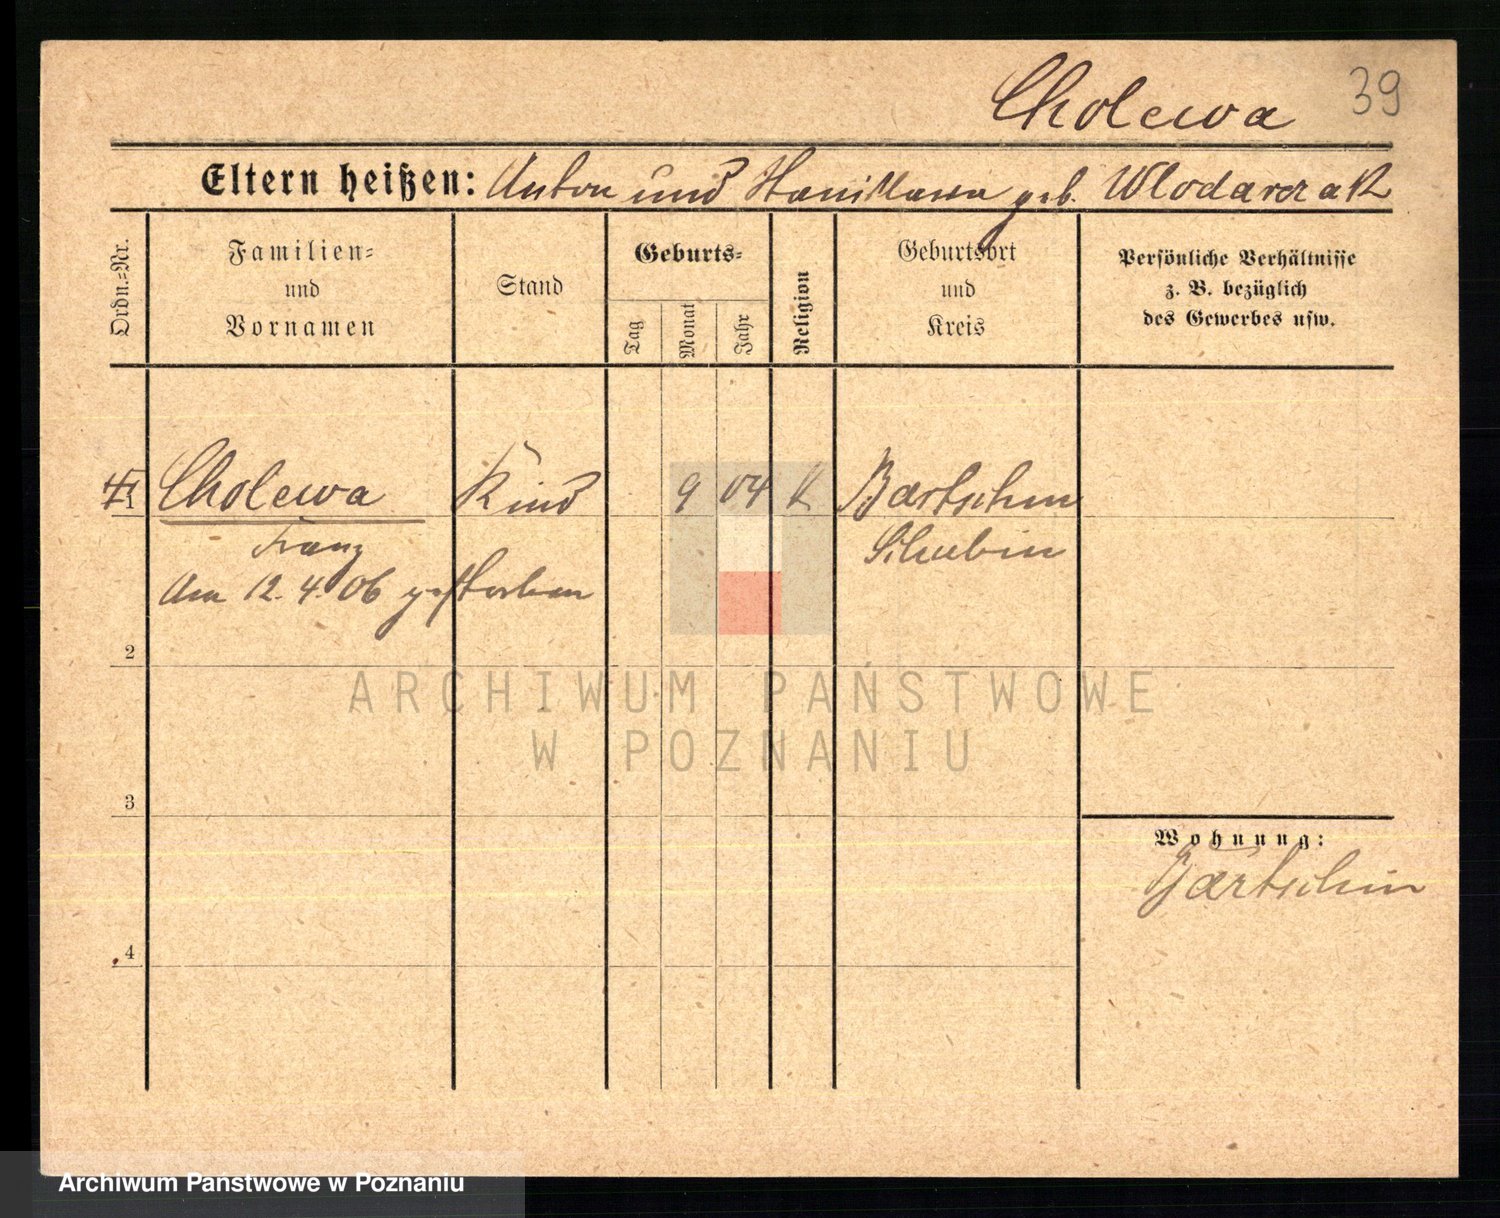 Cholewa 39
Eltern heißen: Anton und Stanislawa geb. Wlodarczak
Ordn.=Nr.
Familien=
und
Vornamen
Stand
Geburts=
Tag
Monat
Jahr
Religion
Geburtsort
und
Kreis
Persönliche Verhältnisse
z. B. bezüglich
des Gewerbes usw.
1 Cholewa Kind 9 04 K Bartschin
Franz Schubin
Am 12. 4. 06 gestorben
2
3
4
Wohnung:
Bartschin
ARCHIWUM PAŃSTWOWE
W POZNANIU
Archiwum Państwowe w Poznaniu